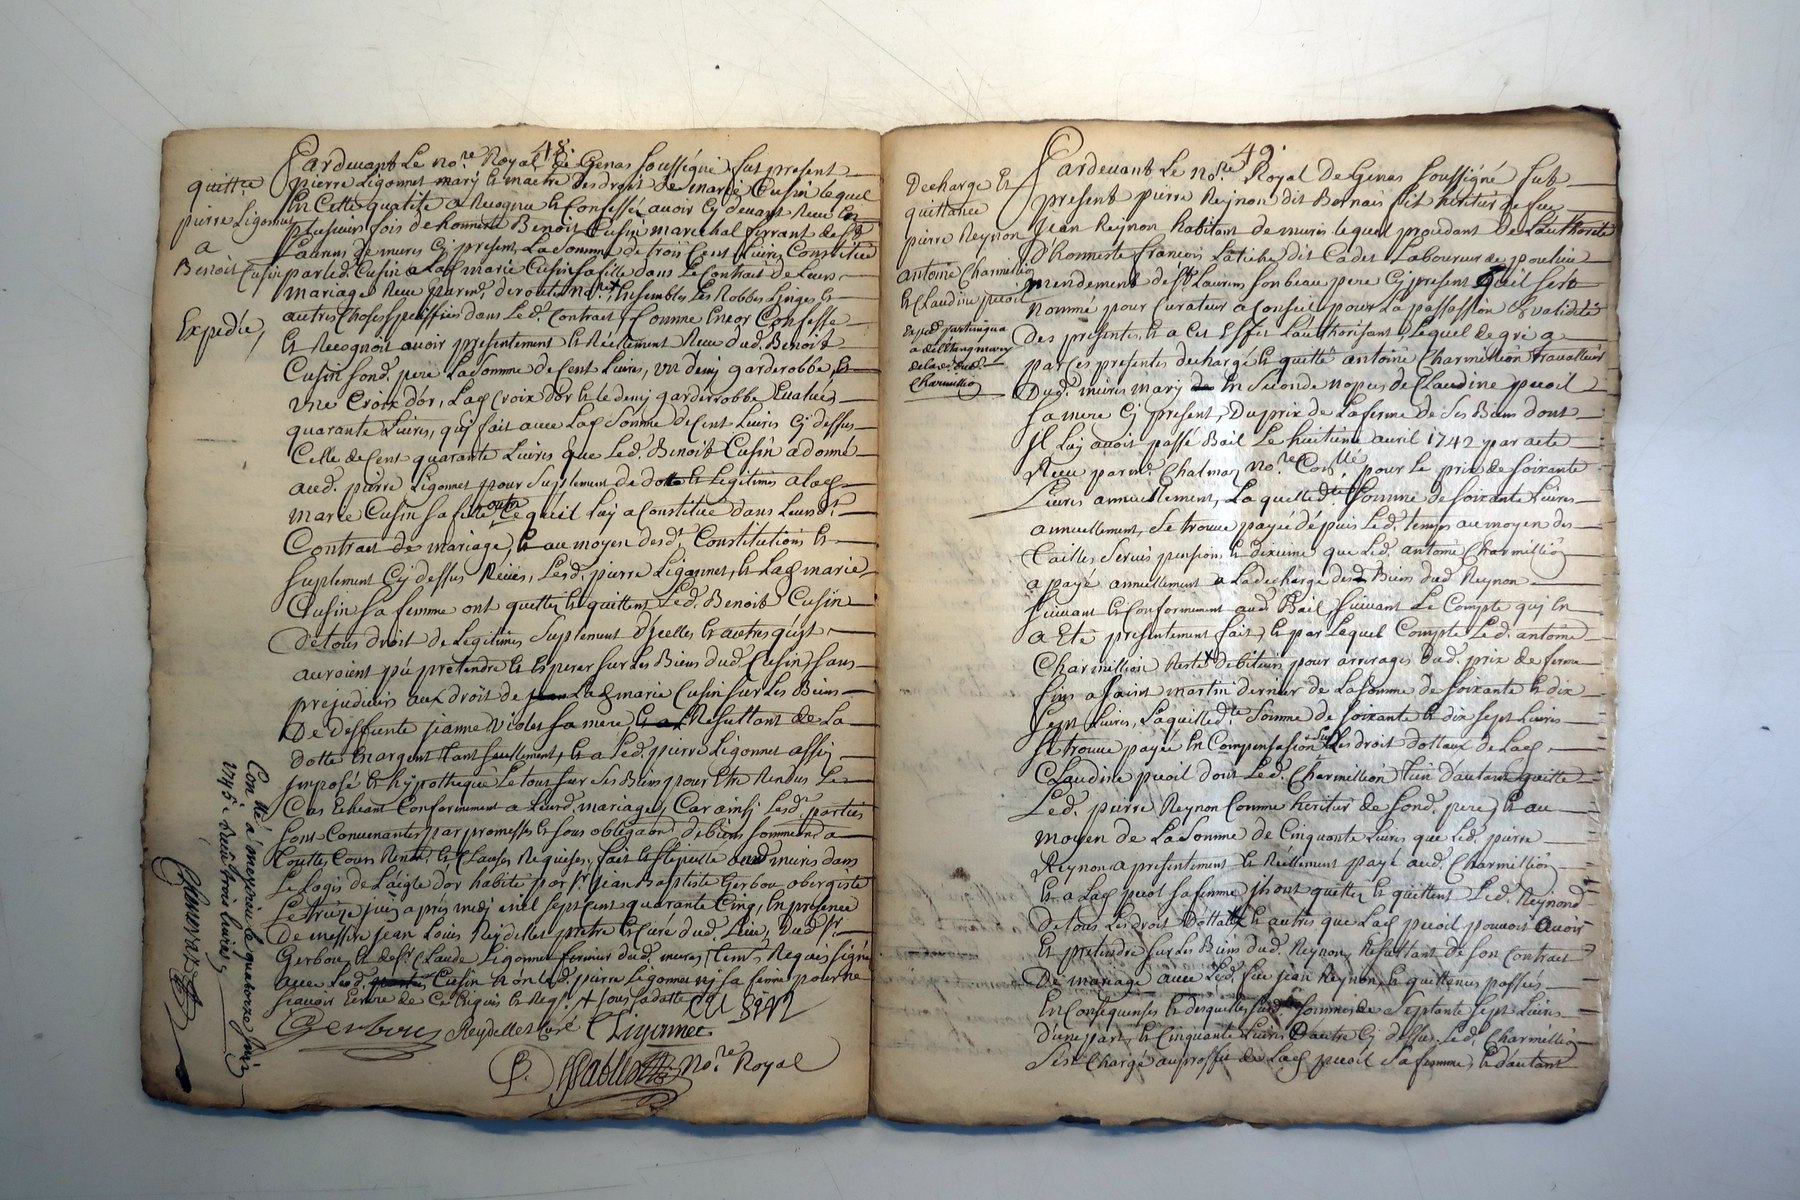 48.
quittce
pierre Ligonnet
a
Benoit Cusin
Expediée
Pardevant Le no.re Royal de Genas soussigné fut present
pierre Ligonnet mary et maitre des droit de marie Cusin lequel
En Cette qualité a Recognu et Confessé avoir Cy devant Receu En
plusieurs fois de honneste Benoit Cusin marechal ferrant de St
Laurans de mures Cy present, La somme de trois Cent Livres Constituée
par led. Cusin a Lad marie Cusin sa fille dans Le Contrat de Leurs
mariage Receu par no.re, Ensembles Les Robbes Linges et
autres Choses speciffiées dans Led. Contrat, Comme Encor Confesse
Et Recognoit avoir presentement Et Réellement Receu dud. Benoit
Cusin sond. pere La somme de Cent Livres, un demy garderobbe, et
une Croix d'or, Lad Croix d'or et le demy garderrobbe Evalués
quarante Livres, quy fait avec Lad somme de Cent Livres Cy dessus
Celle de Cent quarante Livres que Led. Benoit Cusin a donné
aud. pierre Ligonnet pour suplement de dotte et Legitimes a lad
marie Cusin sa fille outre Ce qu'il Luy a Constitué dans Leursd.
Contrat de mariage, et au moyen desd. Constitutions et
suplement Cy dessus Lesd. pierre Ligonnet, et Lad marie
Cusin sa femme ont quittés et quittent Led. Benoit Cusin
de tous droit de Legitimes suplement d'Icelles et autres qu'ils
auroient pû pretendre et Esperer sur Les Biens dud. Cusin, sans
prejudicier aux droit de Lad marie Cusin sur Les Biens
De deffunte jeanne Violet sa mere Resultant de La
dotte En argent tant seullement, Et a Led. pierre Ligonnet assis
imposé et hypothequé Le tout sur ses Biens pour Etre Rendus Le
Cas Echeant Conformement a Leurd. mariage, Car ainsy Lesd. parties
sont Convenantes par promesses et sous obligaon de biens
Cours Renon. et Clauses Requises, fait et stipullé aud mures dans
Le Logis de L'aigle d'or habité par sr. jean Baptiste Gerbou obergiste
Le treize juin après midy mil sept Cent quarante Cinq, En presence
De messire jean Louis Reydellet pretre et Curé dud. Lieu, dud sr.
Gerbou, et de sr. Claude Ligonnet fermier dud. mures, temoins Requis signés
avec Led. Cusin non Led. pierre Ligonnet ny sa femme pour ne
sçavoir Ecrire de Ce Enquis et Reqs.
Gerbou Reydellet Curé C Ligonnet
no.re Royal
Con.llé a meyzieu le quatorze juin
1745. Receu trois livres
49.
Decharge et
quittance
pierre Reynon
antoine Charmillion
et Claudine pucoil
Charmillion
Pardevant Le no.re Royal De Genas soussigné fut
present pierre Reynon dit Bernais fils heritier de feu
jean Reynon habitant de mures lequel procedant De L'authorité
d'honneste francois Latiche dit Cadet Laboureur de poulieu
mendement de St Laurens son beau pere Cy present qu'il sest
Nommé pour Curateur a Conseil pour La passassion et validité
Des presentes, et a Cet Effet L'authorisant, Lequel de gré a
par Ces presentes dechargé et quitté antoine Charmillion travailleur
Dud. mures mary En seconde nopces de Claudine pucoil
sa mere Cy present, Du prix de La ferme de ses Biens dont
jl Luy avoit passé Bail Le huitième avril 1742 par acte
Receu par mr. Chalman no.re pour Le prix de soixante
Livres annuellement, Laquelled.te somme de soixante Livres
annuellement, se trouve payée dépuis Led. temps au moyen des
tailles, servis pensions et dixieme que Led. antoine Charmillion
a payé annuellement a La decharge desd Biens dud Reynon
suivant et Conformement aud. Bail, suivant Le Compte quy En
a Eté presentement fait, et par Lequel Compte Led. antoine
Charmillion Reste debiteur pour arrerages dud. prix de ferme
finis a saint martin dernier de La somme de soixante et dix
sept Livres, Laquelled.te somme de soixante et dix sept Livres
se trouve payée En Compensasion sur Les droit dottaux de Lad
Claudine pucoil dont Led. Charmillion Tien d'autant quitte
Led. pierre Reynon Comme heritier de sond. pere, et au
moyen de La somme de Cinquante Livres que Led. pierre
Reynon a presentement et Réellement payé aud. Charmillion
et a Lad pucoil sa femme jls ont quittés et quittent Led. Reynond
De tous Les droit Dottaux et autres que Lad pucoil pouvoit avoir
et pretendre sur Les Biens dud. Reynon, Resultant de son Contrat
De mariage avec Led. feu jean Reynon, et quittances passées
En Consequenses et desquelles sommes de septante sept Livres
D'une part, et Cinquante Livres D'autre Cy dessus, Led. Charmillion
sest Chargé au proffit de Lad. pucoil sa femme, et d'autant